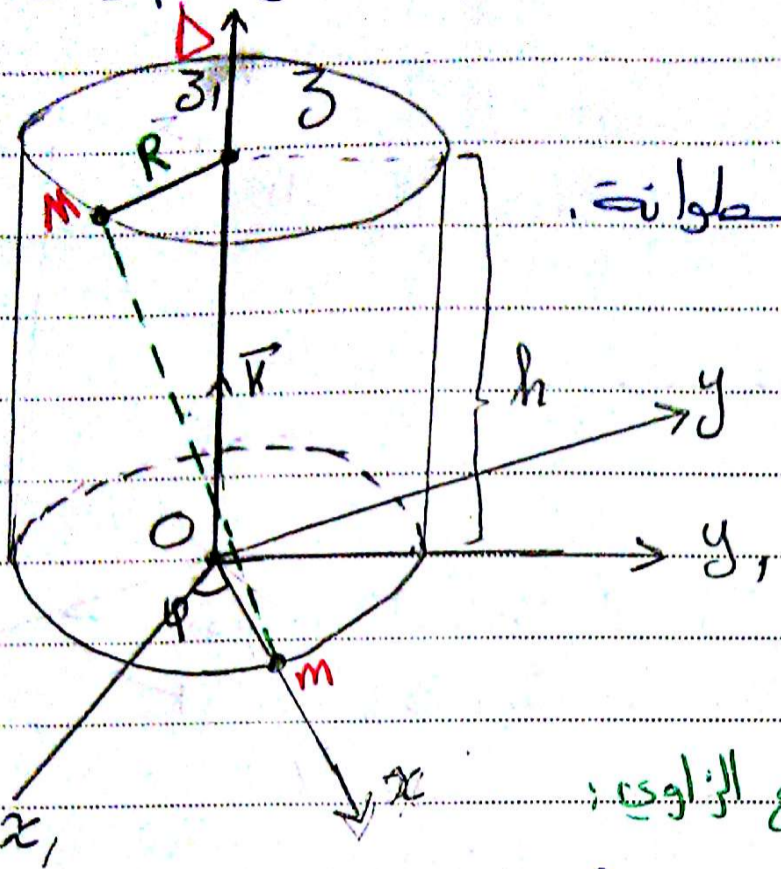 Δ
z₁ z
R
M
طوانة.
K
h
y
O
y₁
φ
m
x
x₁
الزاوي: